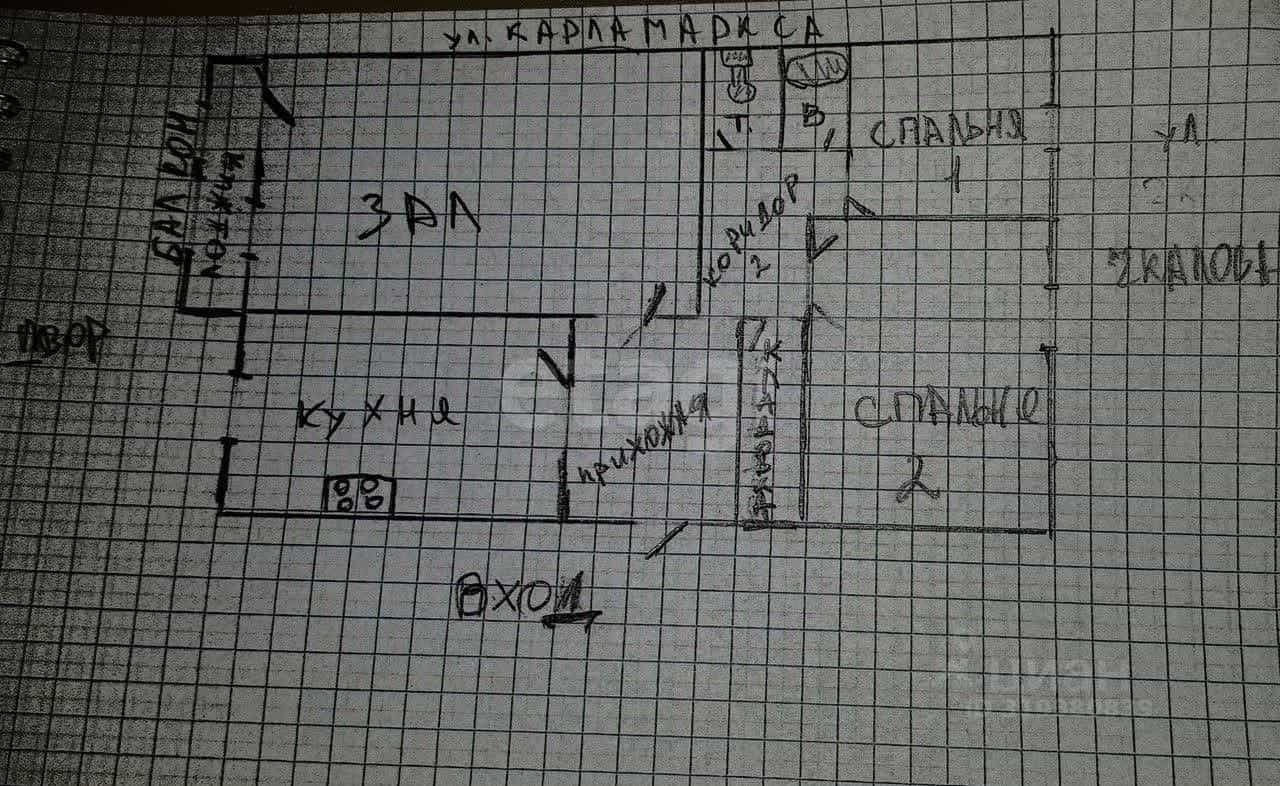 ул. КАРЛА МАРКСА
Т.
В
СПАЛЬНЯ
1
УЛ
ЧКАЛОВА
БАЛКОН
ЗАЛ
КОРИДОР
2
ДВОР
КУХНЯ
ПРИХОЖАЯ
СПАЛЬНЯ
2
ВХОД
etagi